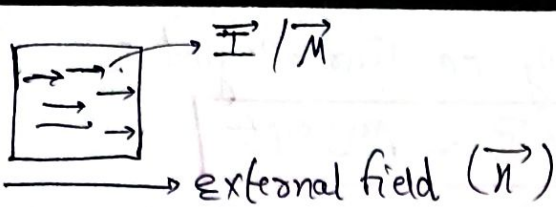 I⃗ / M⃗
external field (n⃗)